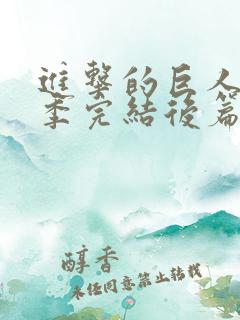 進擊的巨人
季完結後篇
醇香
未经同意禁止转载